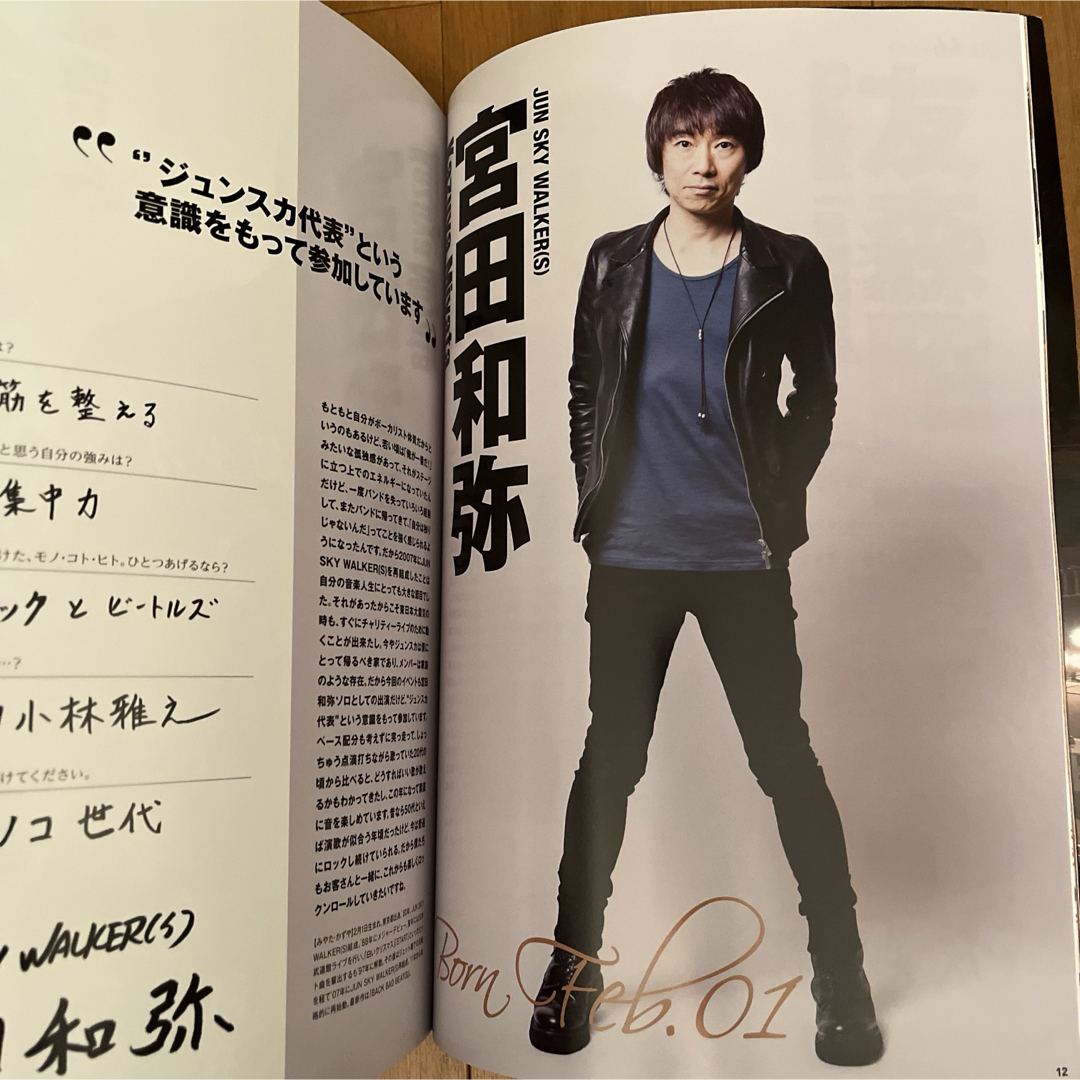 “ “ジュンスカ代表”という
意識をもって参加しています ”
は?
筋を整える
と思う自分の強みは?
集中力
けた、モノ・コト・ヒト。ひとつあげるなら?
ックとビートルズ
…?
小林雅之
けてください。
ノコ世代
WALKER(S)
和弥
もともと自分がボーカリスト体質だからと
いうのもあるけど、若い頃は「俺が一番だ!」
みたいな孤独感があって、それがステージ
に立つ上でのエネルギーになっていたん
だけど、一度バンドを失っていろいろ経験
して、またバンドに帰ってきて、「自分は独り
じゃないんだ」ってことを強く感じられるよ
うになったんです。だから2007年にJUN
SKY WALKER(S)を再結成したことは
自分の音楽人生にとっても大きな節目でし
た。それがあったからこそ東日本大震災の
時も、すぐにチャリティーライブのために動
くことが出来たし。今やジュンスカは僕に
とって帰るべき家であり、メンバーは家族
のような存在。だから今回のイベントも宮田
和弥ソロとしての出演だけど、“ジュンスカ
代表”という意識をもって参加しています。
ペース配分も考えずに突っ走って、しょっ
ちゅう点滴打ちながら歌っていた20代の
頃から比べると、どうすればいい歌が歌え
るかもわかってきたし、この年になって素直
に音を楽しめています。昔なら50代といえ
ば演歌が似合う年頃だったけど、今は普通
にロックし続けていられる。だから僕たち
もお客さんと一緒に、これからも楽しくロッ
クンロールしていきたいですね。
【みやた・かずや】2月1日生まれ、東京都出身。
WALKER(S)結成。'88年にメジャーデビュー。
武道館ライブを行い、「白いクリスマス」「START」
ト曲を輩出するも'97年に解散。
を経て'07年にJUN SKY WALKER(S)再結成。
格的に再始動。最新作は『BACK BAD BEATS』。
JUN SKY WALKER(S)
宮田和弥
Born Feb.01
12